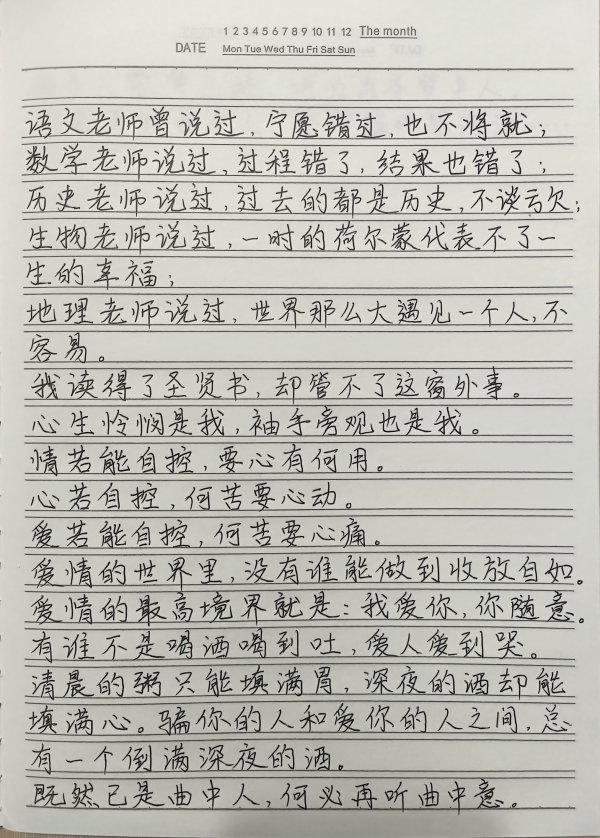 1 2 3 4 5 6 7 8 9 10 11 12 The month
DATE Mon Tue Wed Thu Fri Sat Sun
语文老师曾说过，宁愿错过，也不将就；
数学老师说过，过程错了，结果也错了；
历史老师说过，过去的都是历史，不谈亏欠；
生物老师说过，一时的荷尔蒙代表不了一
生的幸福；
地理老师说过，世界那么大遇见一个人，不
容易。
我读得了圣贤书，却管不了这窗外事。
心生怜悯是我，袖手旁观也是我。
情若能自控，要心有何用。
心若自控，何苦要心动。
爱若能自控，何苦要心痛。
爱情的世界里，没有谁能做到收放自如。
爱情的最高境界就是：我爱你，你随意。
有谁不是喝洒喝到吐，爱人爱到哭。
清晨的粥只能填满胃，深夜的洒却能
填满心。骗你的人和爱你的人之间，总
有一个倒满深夜的洒。
既然已是曲中人，何必再听曲中意。